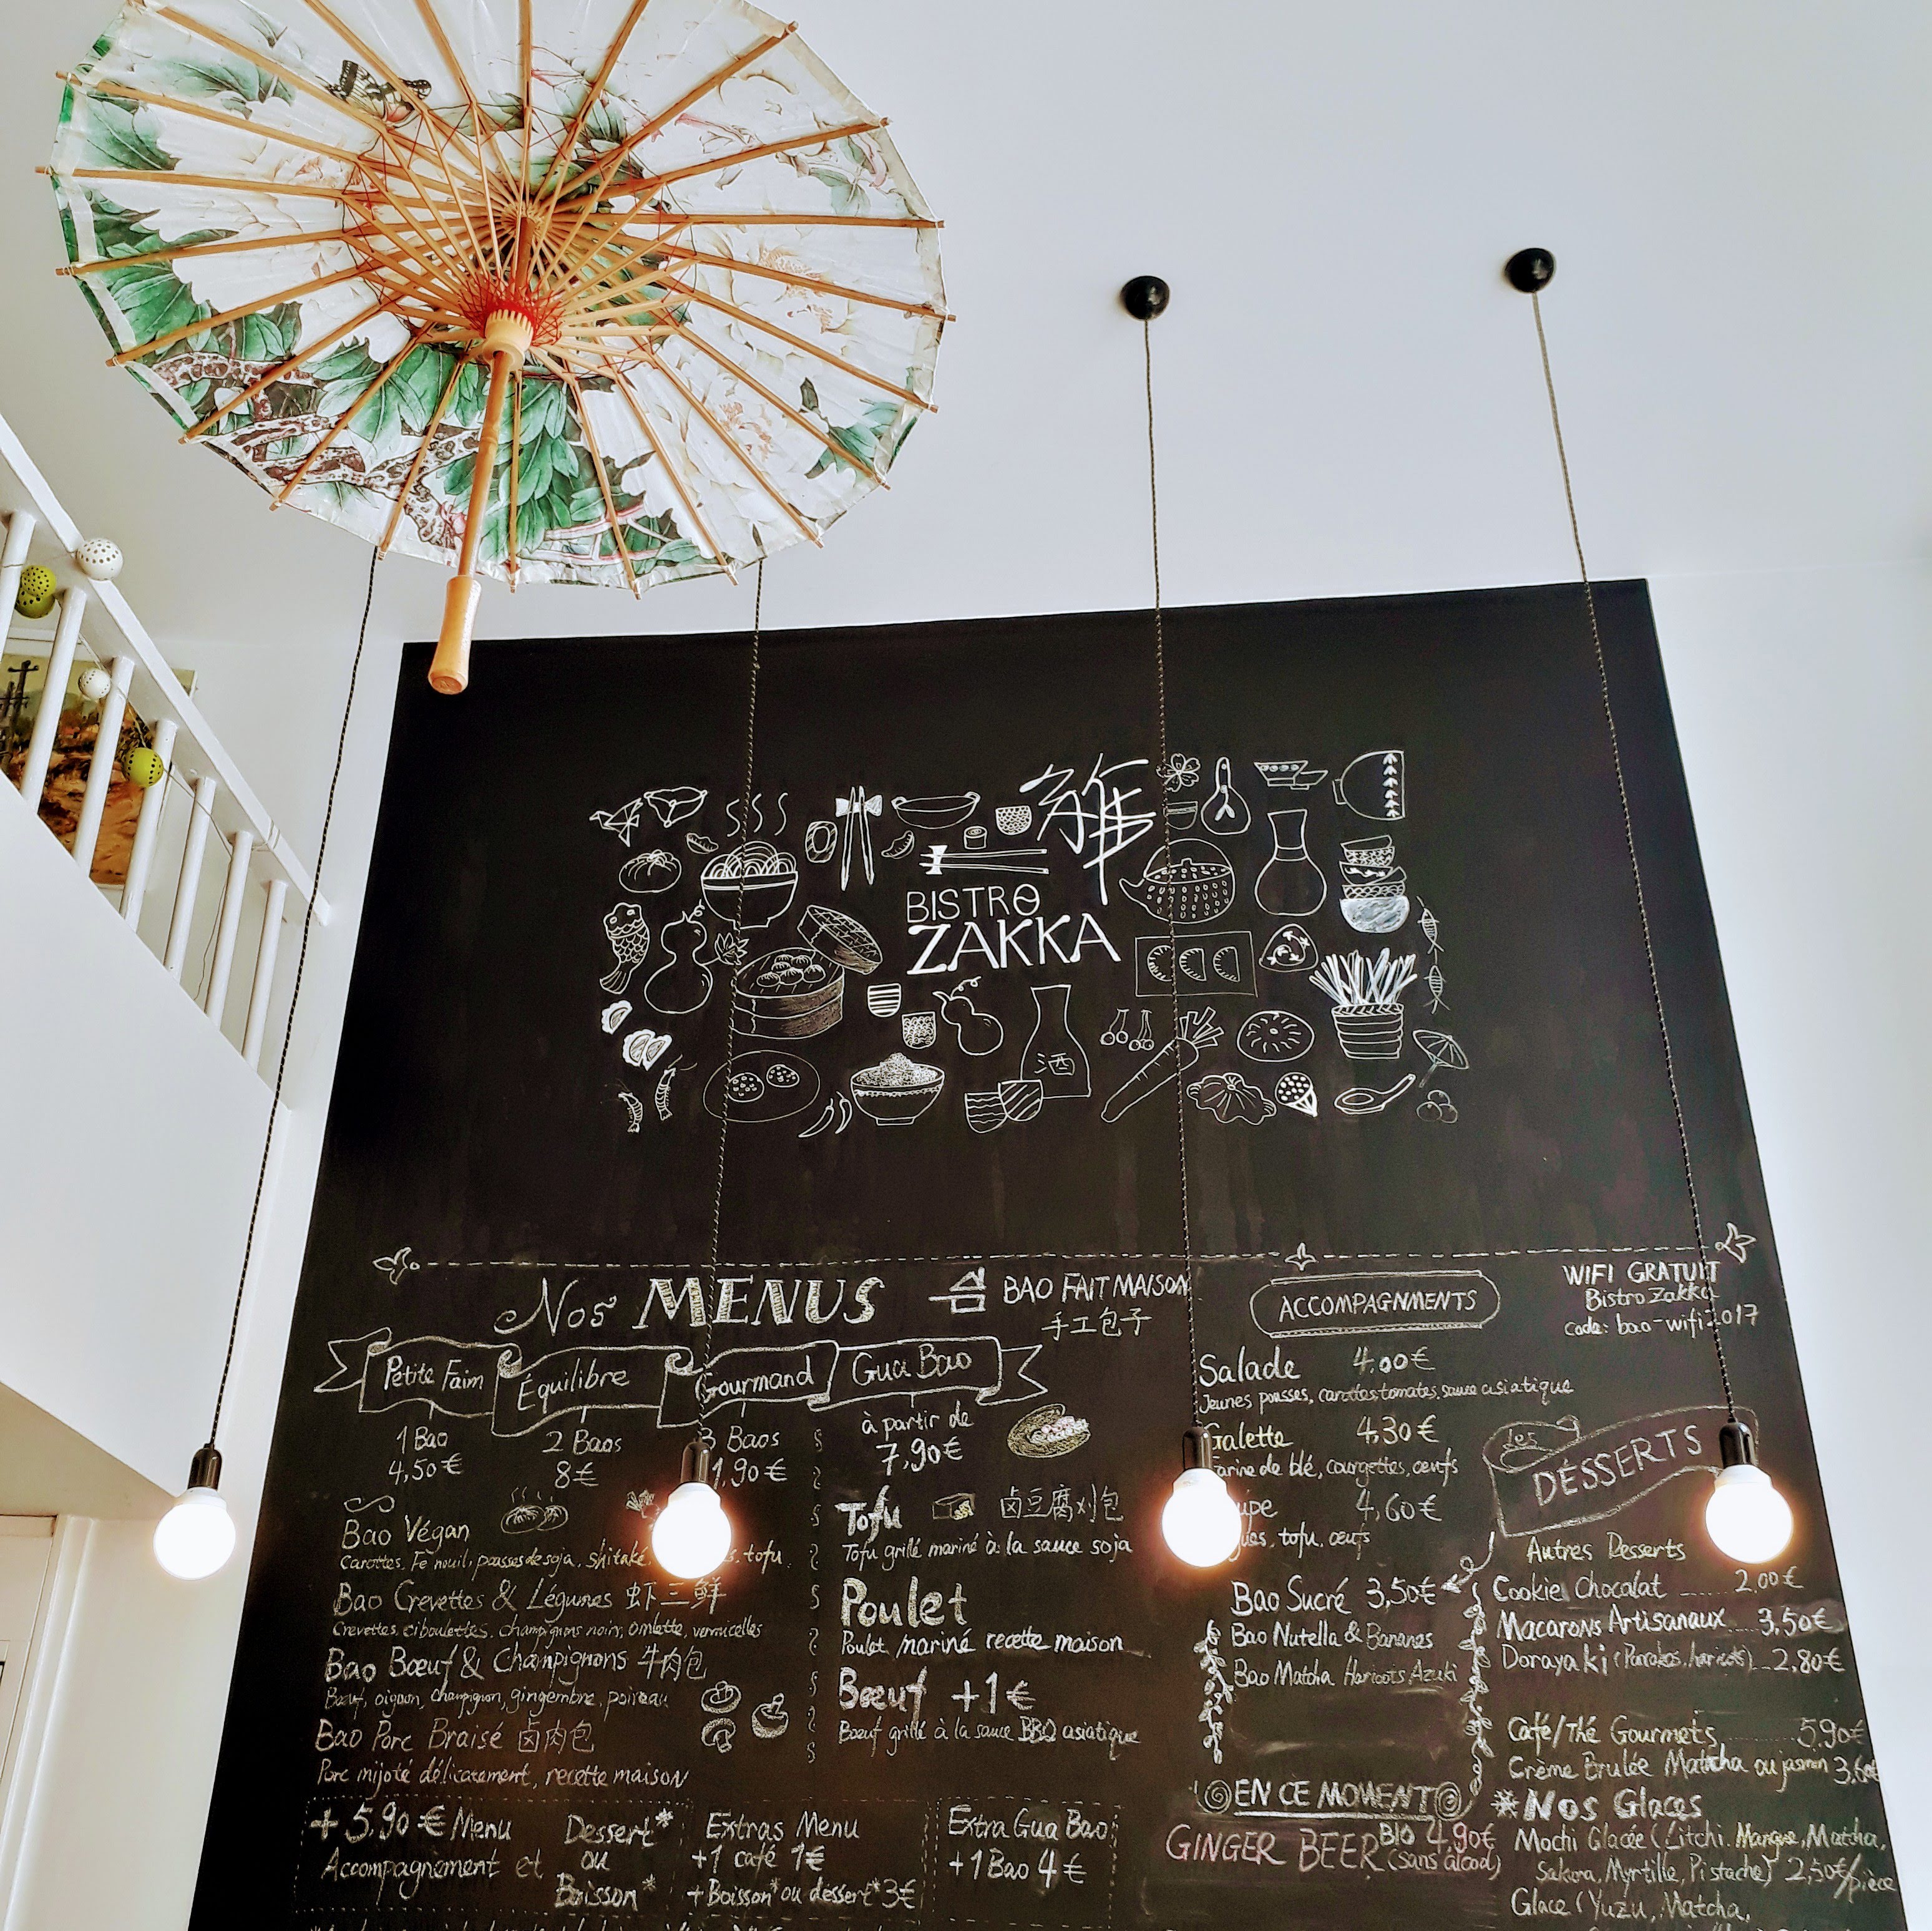 雜
BISTRO
ZAKKA
酒
Nos MENUS
BAO FAIT MAISON
手工包子
Petite Faim
Équilibre
Gourmand
Gua Bao
1 Bao
4,50€
2 Baos
8€
Baos
1,90€
à partir de
7,90€
Bao Végan
Carottes, Fenouil, pousses de soja, shitaké, tofu
Bao Crevettes & Légumes 虾三鲜
Crevettes, ciboulettes, champignons noirs, omlette, vermicelles
Bao Bœuf & Champignons 牛肉包
Bœuf, oignon, champignon, gingembre, poireau
Bao Porc Braisé 卤肉包
Porc mijoté délicatement, recette maison
Tofu 卤豆腐刈包
Tofu grillé mariné à la sauce soja
Poulet
Poulet mariné recette maison
Bœuf +1€
Bœuf grillé à la sauce BBQ asiatique
+5,90€ Menu
Accompagnement et
Dessert*
ou
Boisson*
Extras Menu
+1 café 1€
+Boisson* ou dessert* 3€
Extra Gua Bao
+1 Bao 4€
ACCOMPAGNMENTS
Salade 4,00€
Jeunes pousses, carottes, tomates, sauce asiatique
Galette 4,30€
Farine de blé, courgettes, œufs
4,60€
tofu, œufs
Bao Sucré 3,50€
Bao Nutella & Bananes
Bao Matcha Haricots Azuki
EN CE MOMENT
GINGER BEER BIO 4,90€
(sans alcool)
WIFI GRATUIT
Bistro Zakka
Code: bao-wifi-2017
les
DÉSSERTS
Autres Desserts
Cookie Chocolat 2,00€
Macarons Artisanaux 3,50€
Dorayaki (Pancakes, haricots) 2,80€
Café/Thé Gourmets 5,90€
Crème Brulée Matcha ou jasmin 3,60€
*Nos Glaces
Mochi Glacée (Litchi, Mangue, Matcha,
Sakura, Myrtille, Pistache) 2,50€/pièce
Glace (Yuzu, Matcha,